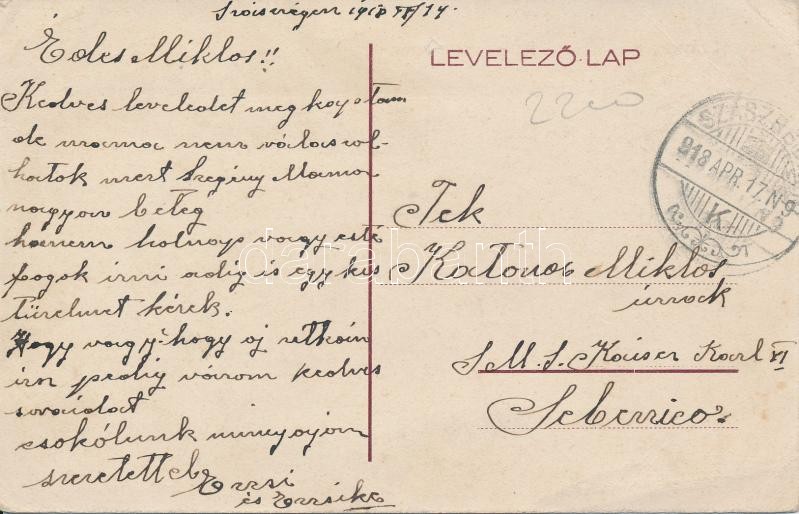 1918
Édes Miklos!!
Kedves leveledet megkaptam
de mama nem válaszol-
hatok mert Szegény Mama
nagyon beteg
hanem holnap vagy este
fogok irni adig is egy kis
türelmet kérek.
Hogy vagy? hogy oj ritkán
irsz pedig várom kedves
soraidat
csokólunk minnyájan
szeretettel
Erzsi
és Erzsike
LEVELEZŐ LAP
2200
918 APR. 17. N 9
K
Tek
Katona Miklos
úrnak
S. M. S. Kaiser Karl VI
Sebenico
darabanth